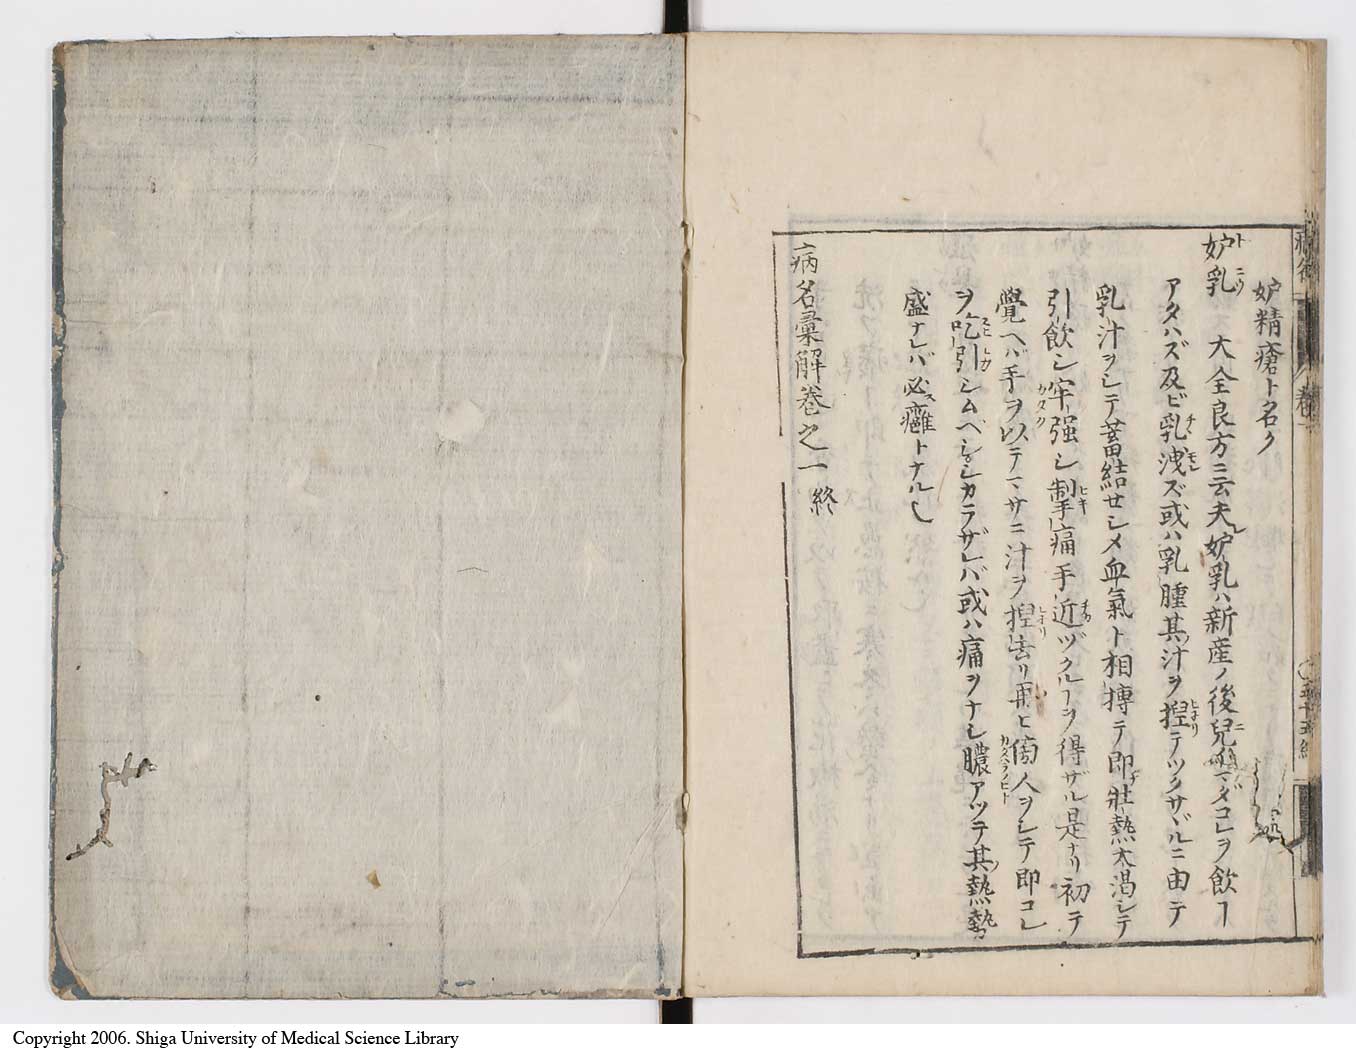 妒精瘡ト名ク
妒乳 大全良方ニ云夫妒乳ハ新産ノ後兒イマダコレヲ飲コ
アタハズ及ビ乳洩ズ或ハ乳腫其汁ヲ揑テツクサヾルニ由テ
乳汁ヲシテ蓄結セシメ血氣ト相搏テ即壯熱大渇シテ
引飲シ牢强シ掣痛手近ヅクルヿヲ得ザル是ナリ初テ
覺ヘバ手ヲ以テマサニ汁ヲ揑去リ再ヒ傍人ヲシテ即コレ
ヲ吃引シムベシシカラザレバ或ハ痛ヲナシ膿アツテ其熱勢
盛ナレバ必癰トナル也
病名彙解巻之一終
Copyright 2006. Shiga University of Medical Science Library